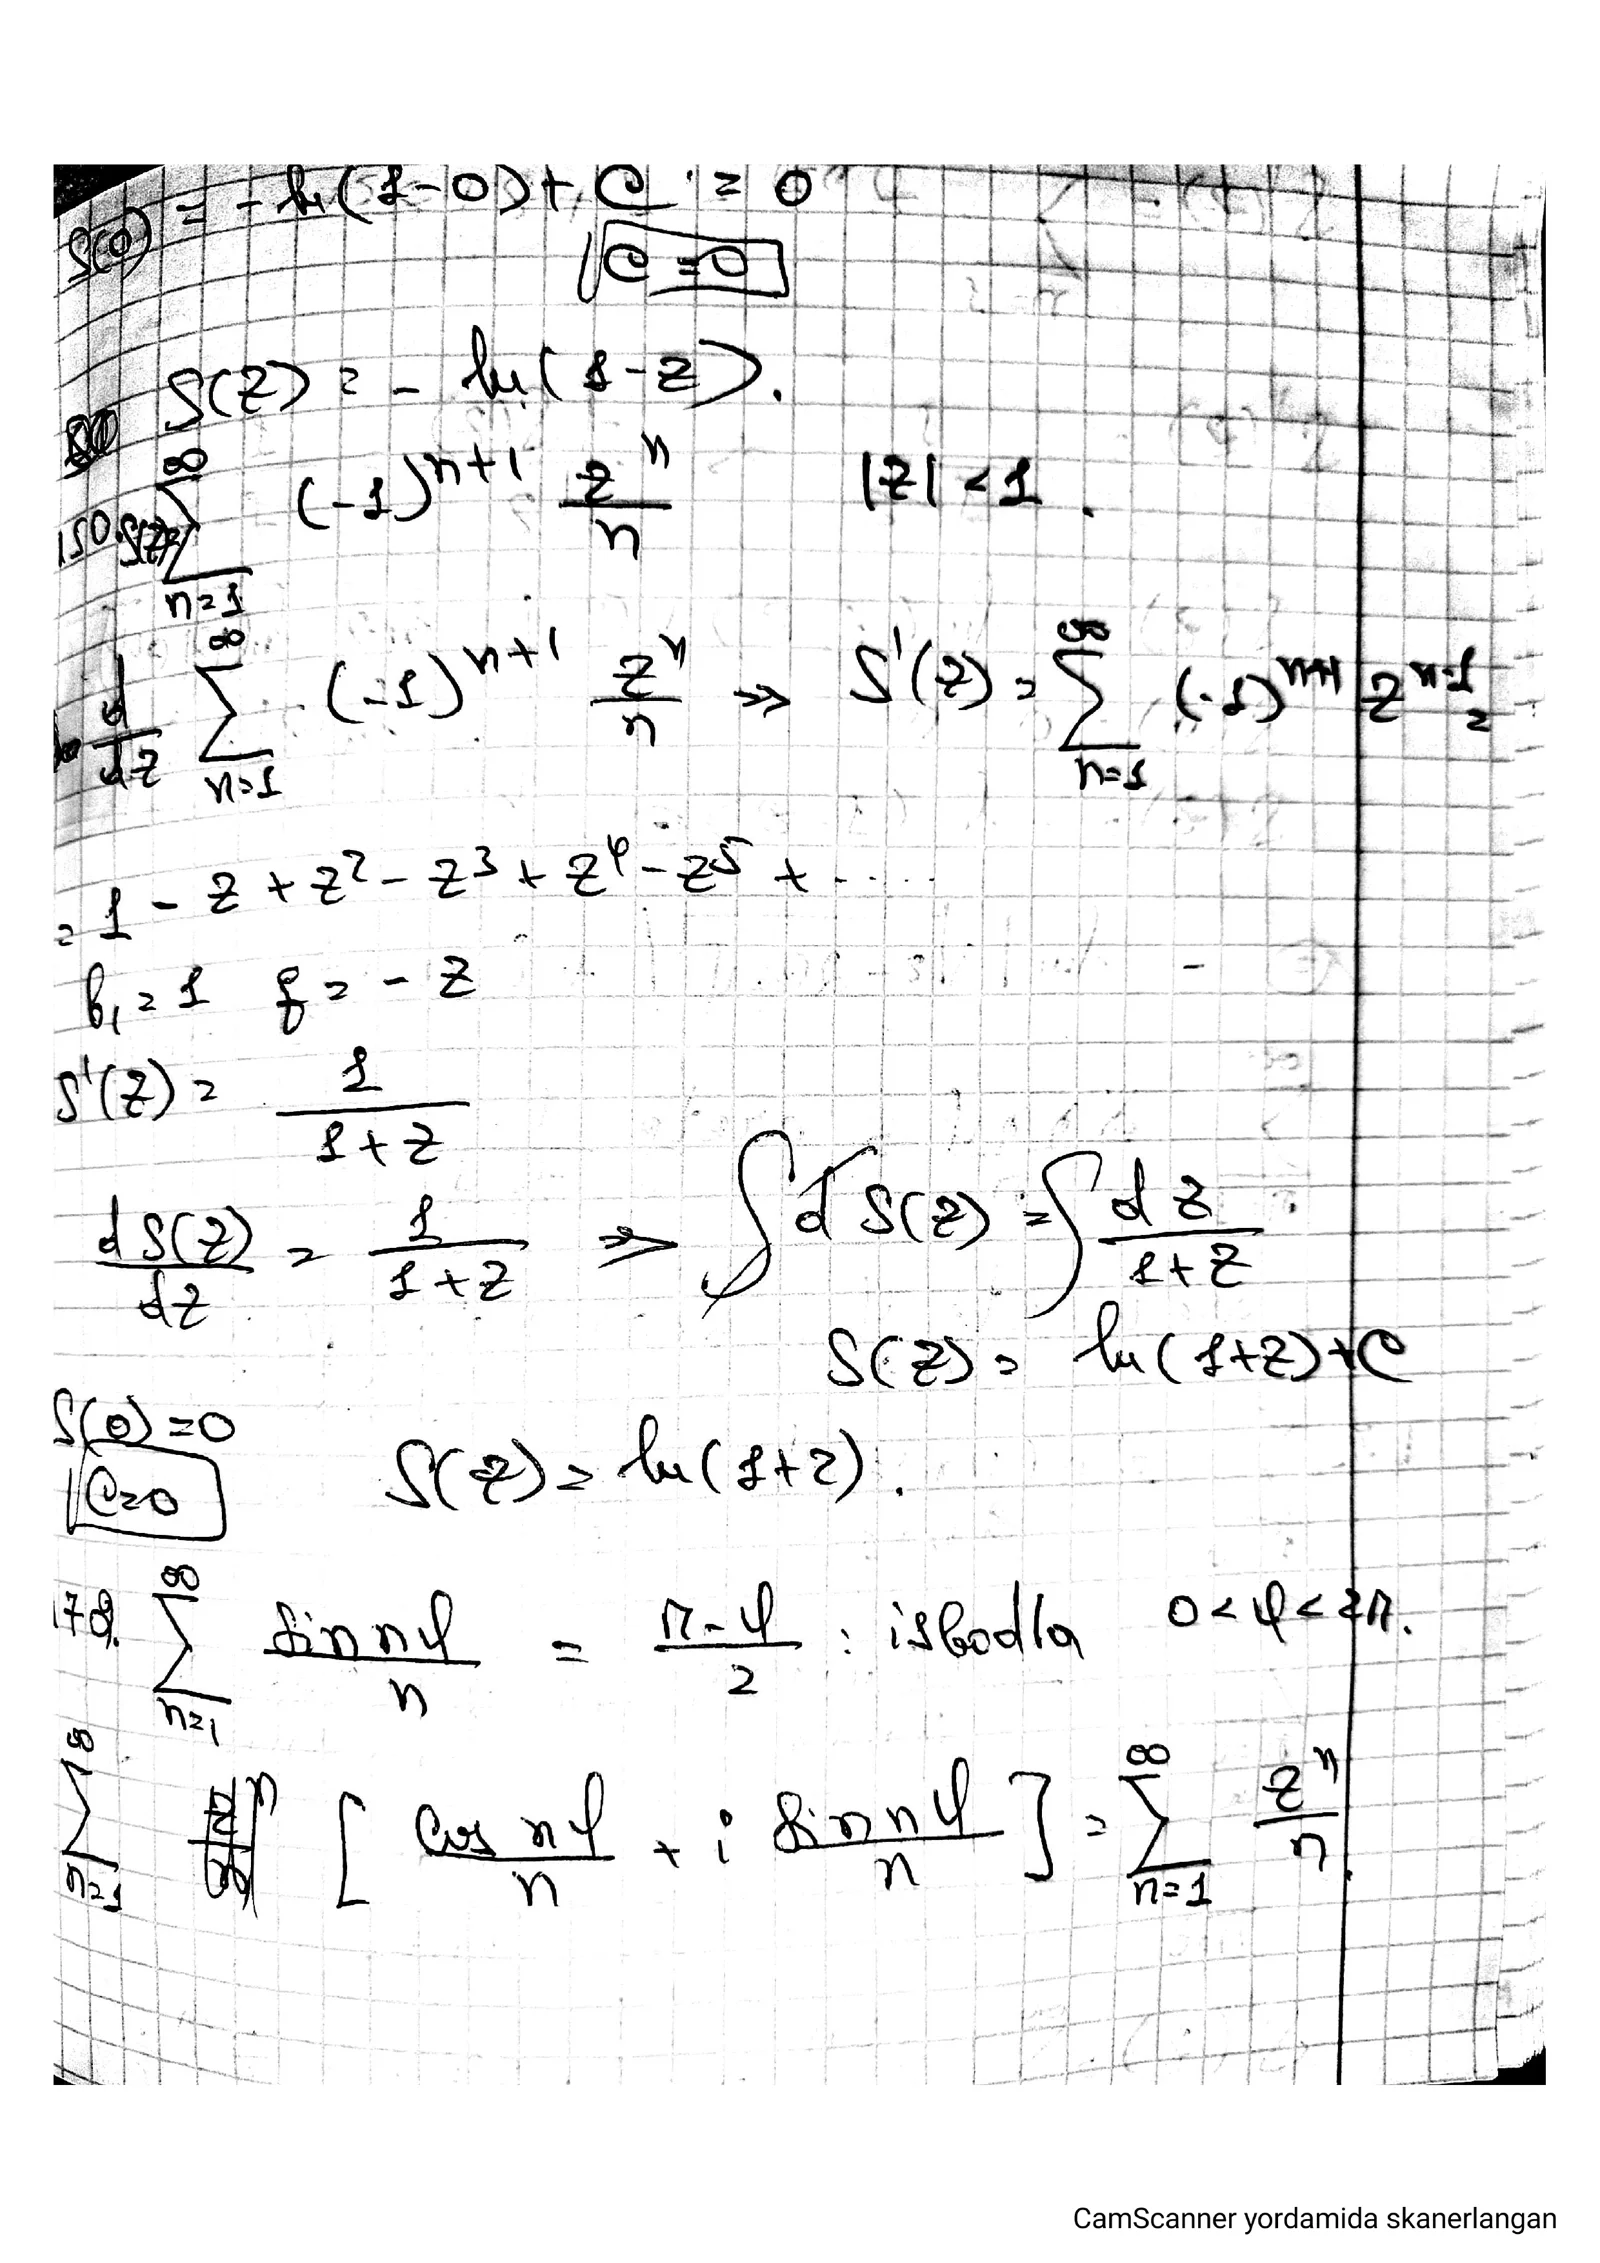 S(0) = - ln(1-0) + C = 0
C = 0
S(z) = - ln(1-z).
150. S(z)= ∑_{n=1}^{∞} (-1)^{n+1} z^n/n |z| < 1.
d/dz ∑_{n=1}^{∞} (-1)^{n+1} z^n/n ⇒ S'(z) = ∑_{n=1}^{∞} (-1)^{n+1} z^{n-1} =
= 1 - z + z^2 - z^3 + z^4 - z^5 + ....
b_1 = 1 q = - z
S'(z) = 1/(1+z)
dS(z)/dz = 1/(1+z) ⇒ ∫ d S(z) = ∫ dz/(1+z)
S(z) = ln(1+z) + C
S(0) = 0
C = 0 S(z) = ln(1+z).
∑_{n=1}^{∞} sin nφ/n = (π-φ)/2 : isbodla 0 < φ < 2π.
∑_{n=1}^{∞} [cos nφ/n + i sin nφ/n] = ∑_{n=1}^{∞} z^n/n.
CamScanner yordamida skanerlangan